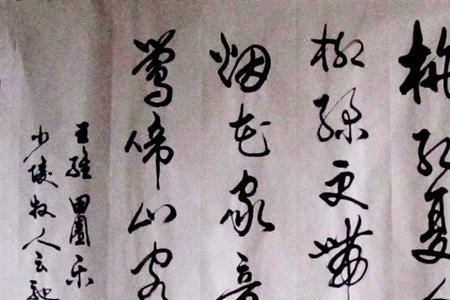 桃红复
柳绿更带
烟花家童
莺啼山客
王维 田園乐
少陵牧人云